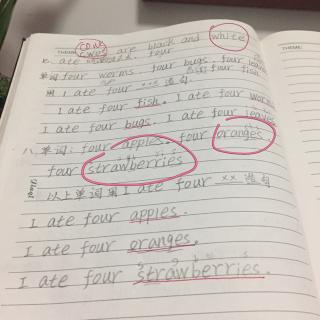 THEME:
THEME:
cows are black and white
k. ate four
单词 four worms. four bugs. four leaves
four fish.
用 I ate four ×× 造句
I ate four fish. I ate four worms
I ate four bugs. I ate four leaves
八、单词: four apples. four oranges
four strawberries
以上单词用 I ate four ×× 造句
I ate four apples.
I ate four oranges.
I ate four strawberries.